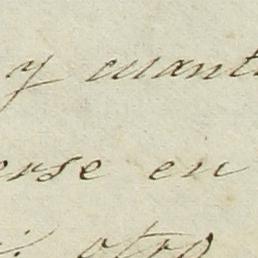 y cuant
erse en
otro